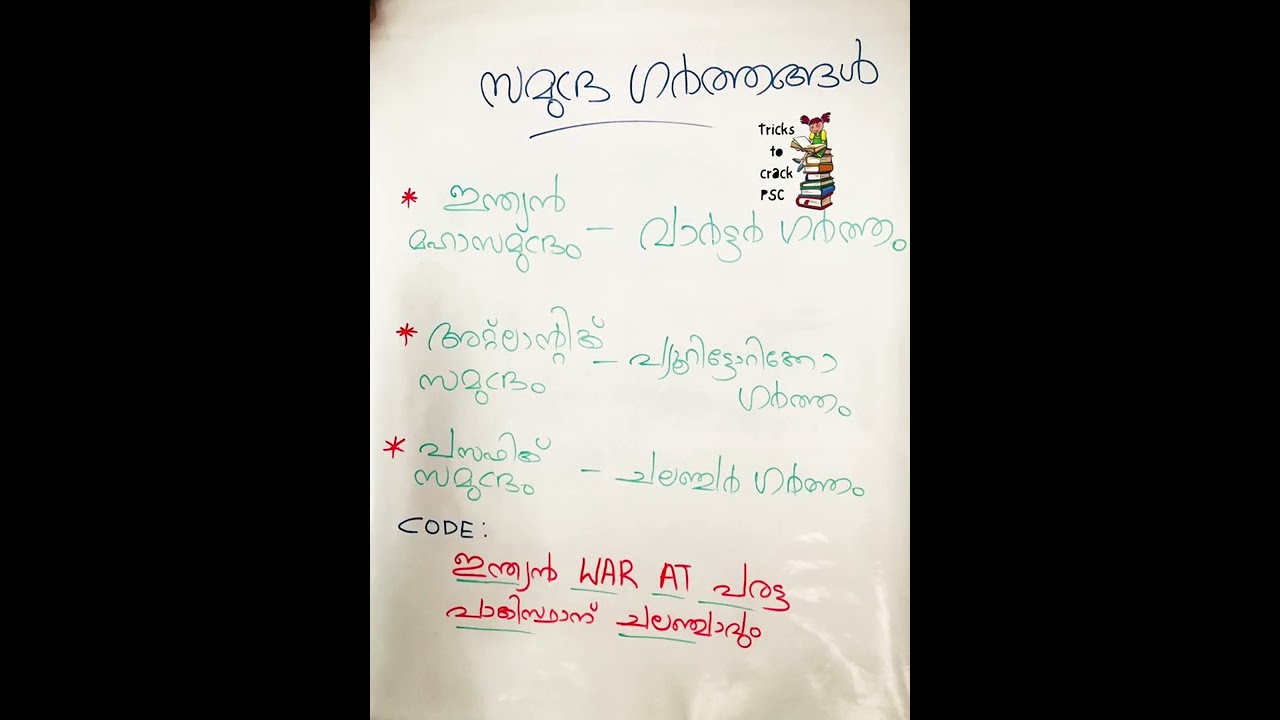 സമുദ്ര ഗർത്തങ്ങൾ
Tricks
to
crack
PSC
* ഇന്ത്യൻ
മഹാസമുദ്രം – വാർട്ടർ ഗർത്തം
* അറ്റ്ലാന്റിക്
സമുദ്രം – പ്യൂറിട്ടോറിക്കോ
ഗർത്തം
* പസഫിക്
സമുദ്രം – ചലഞ്ചർ ഗർത്തം
CODE:
ഇന്ത്യൻ WAR AT പരട്ട
പാകിസ്ഥാന് ചലഞ്ചാവും